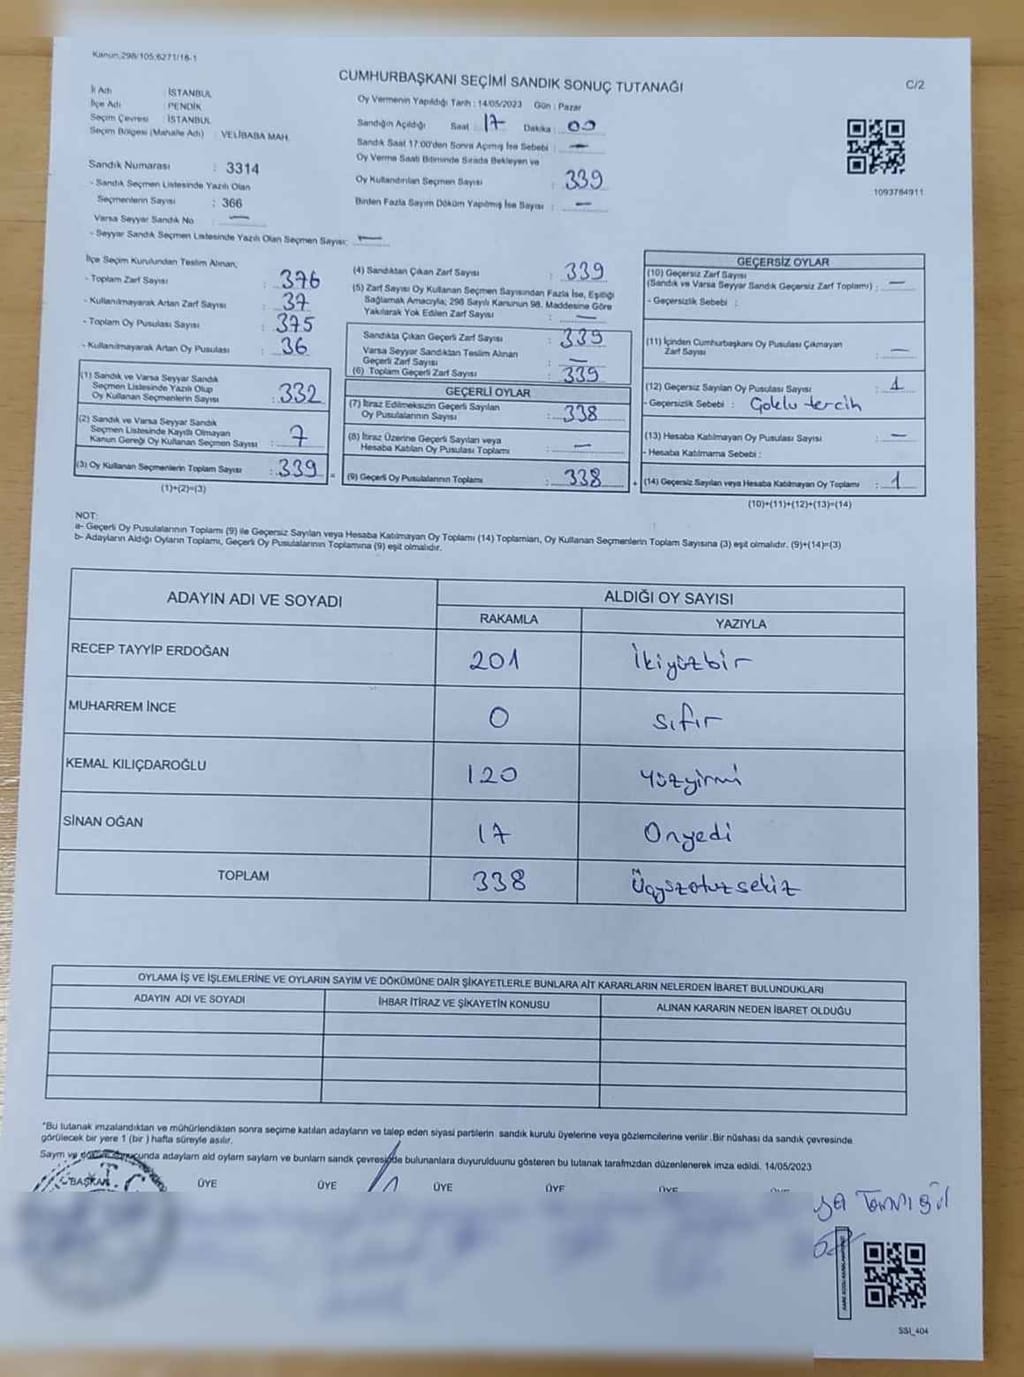 Kanun:298/105;6271/16-1
CUMHURBAŞKANI SEÇİMİ SANDIK SONUÇ TUTANAĞI
C/2
İl Adı : İSTANBUL
İlçe Adı : PENDİK
Seçim Çevresi : İSTANBUL
Seçim Bölgesi (Mahalle Adı) : VELİBABA MAH.
Oy Vermenin Yapıldığı Tarih : 14/05/2023 Gün : Pazar
Sandığın Açıldığı Saat : 17 Dakika : 00
Sandık Saat 17:00'den Sonra Açılmış İse Sebebi : —
Oy Verme Saati Bitiminde Sırada Bekleyen ve
Oy Kullandırılan Seçmen Sayısı : 339
Birden Fazla Sayım Döküm Yapılmış İse Sayısı : —
1093784911
Sandık Numarası : 3314
- Sandık Seçmen Listesinde Yazılı Olan
Seçmenlerin Sayısı : 366
Varsa Seyyar Sandık No : —
- Seyyar Sandık Seçmen Listesinde Yazılı Olan Seçmen Sayısı: —
İlçe Seçim Kurulundan Teslim Alınan;
- Toplam Zarf Sayısı : 376
- Kullanılmayarak Artan Zarf Sayısı : 37
- Toplam Oy Pusulası Sayısı : 375
- Kullanılmayarak Artan Oy Pusulası : 36
(1) Sandık ve Varsa Seyyar Sandık
Seçmen Listesinde Yazılı Olup
Oy Kullanan Seçmenlerin Sayısı : 332
(2) Sandık ve Varsa Seyyar Sandık
Seçmen Listesinde Kayıtlı Olmayan
Kanun Gereği Oy Kullanan Seçmen Sayısı : 7
(3) Oy Kullanan Seçmenlerin Toplam Sayısı : 339
(1)+(2)=(3)
(4) Sandıktan Çıkan Zarf Sayısı : 339
(5) Zarf Sayısı Oy Kullanan Seçmen Sayısından Fazla İse, Eşitliği
Sağlamak Amacıyla; 298 Sayılı Kanunun 98. Maddesine Göre
Yakılarak Yok Edilen Zarf Sayısı : —
Sandıkta Çıkan Geçerli Zarf Sayısı : 339
Varsa Seyyar Sandıktan Teslim Alınan
Geçerli Zarf Sayısı : —
(6) Toplam Geçerli Zarf Sayısı : 339
GEÇERLİ OYLAR
(7) İtiraz Edilmeksizin Geçerli Sayılan
Oy Pusulalarının Sayısı : 338
(8) İtiraz Üzerine Geçerli Sayılan veya
Hesaba Katılan Oy Pusulası Toplamı : —
(9) Geçerli Oy Pusulalarının Toplamı : 338
GEÇERSİZ OYLAR
(10) Geçersiz Zarf Sayısı
(Sandık ve Varsa Seyyar Sandık Geçersiz Zarf Toplamı) : —
- Geçersizlik Sebebi :
(11) İçinden Cumhurbaşkanı Oy Pusulası Çıkmayan
Zarf Sayısı : —
(12) Geçersiz Sayılan Oy Pusulası Sayısı : 1
- Geçersizlik Sebebi : Çoklu tercih
(13) Hesaba Katılmayan Oy Pusulası Sayısı : —
- Hesaba Katılmama Sebebi :
(14) Geçersiz Sayılan veya Hesaba Katılmayan Oy Toplamı : 1
(10)+(11)+(12)+(13)=(14)
NOT:
a- Geçerli Oy Pusulalarının Toplamı (9) ile Geçersiz Sayılan veya Hesaba Katılmayan Oy Toplamı (14) Toplamları, Oy Kullanan Seçmenlerin Toplam Sayısına (3) eşit olmalıdır. (9)+(14)=(3)
b- Adayların Aldığı Oyların Toplamı, Geçerli Oy Pusulalarının Toplamına (9) eşit olmalıdır.
ADAYIN ADI VE SOYADI
ALDIĞI OY SAYISI
RAKAMLA YAZIYLA
RECEP TAYYİP ERDOĞAN 201 İkiyüzbir
MUHARREM İNCE 0 sıfır
KEMAL KILIÇDAROĞLU 120 Yüzyirmi
SİNAN OĞAN 17 Onyedi
TOPLAM 338 Üçyüzotuzsekiz
OYLAMA İŞ VE İŞLEMLERİNE VE OYLARIN SAYIM VE DÖKÜMÜNE DAİR ŞİKAYETLERLE BUNLARA AİT KARARLARIN NELERDEN İBARET BULUNDUKLARI
ADAYIN ADI VE SOYADI İHBAR İTİRAZ VE ŞİKAYETİN KONUSU ALINAN KARARIN NEDEN İBARET OLDUĞU
*Bu tutanak imzalandıktan ve mühürlendikten sonra seçime katılan adayların ve talep eden siyasi partilerin sandık kurulu üyelerine veya gözlemcilerine verilir. Bir nüshası da sandık çevresinde
görülecek bir yere 1 (bir ) hafta süreyle asılır.
Sayım ve adayların ald oyların sayların ve bunların sandık çevresinde bulunanlara duyurulduunu gösteren bu tutanak tarafmzdan düzenlenerek imza edildi. 14/05/2023
BAŞKAN ÜYE ÜYE ÜYE ÜYE ÜYE
SSI_404